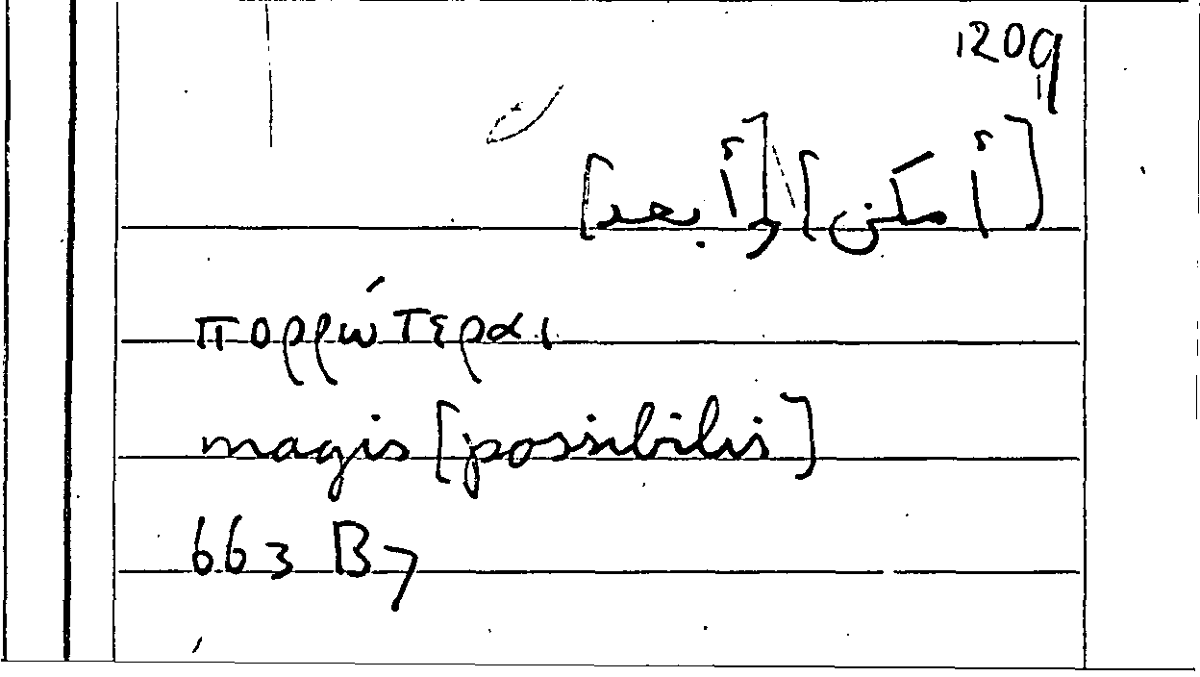 1209
[أمكن] و[أبعد]
πορρώτεραι
magis [possibilis]
663 B7